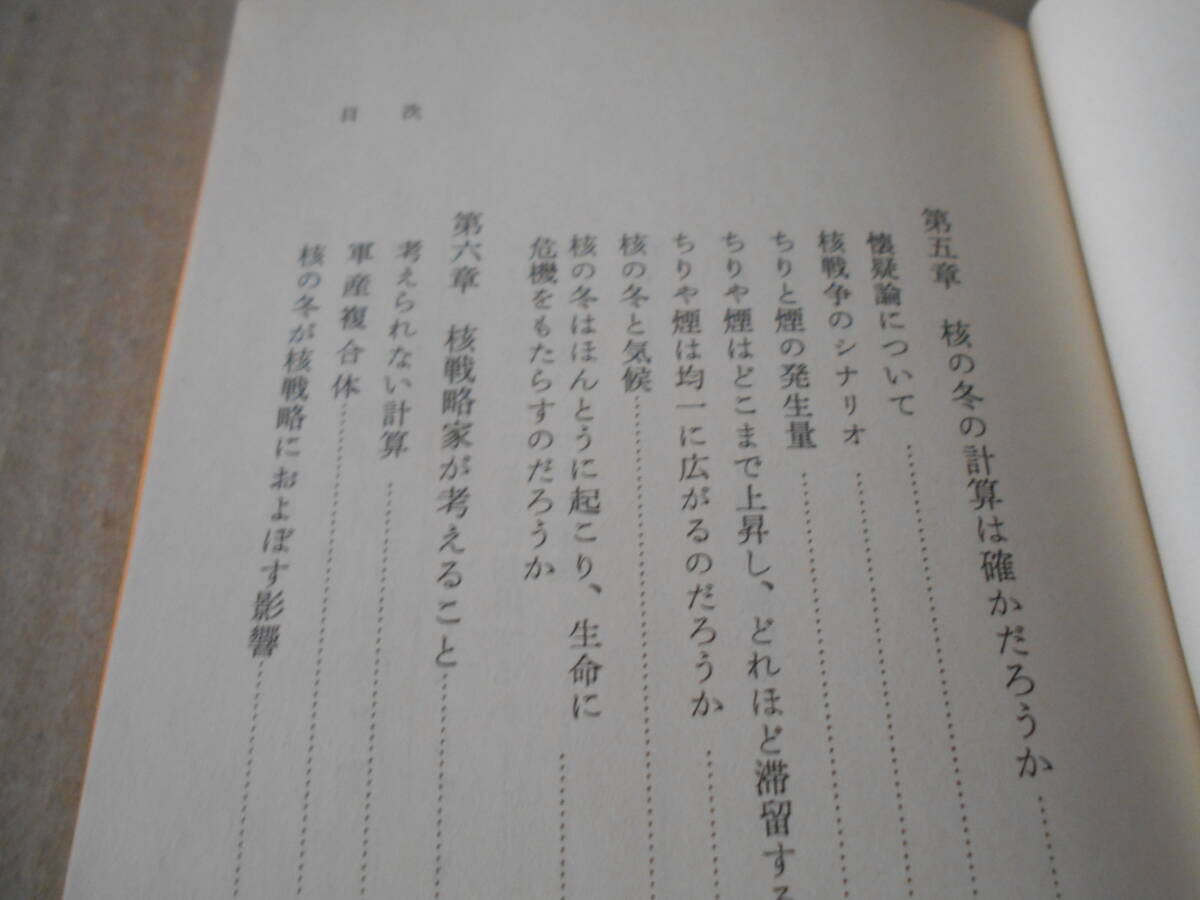 目次
第五章 核の冬の計算は確かだろうか
懐疑論について
核戦争のシナリオ
ちりと煙の発生量
ちりや煙はどこまで上昇し、どれほど滞留する
ちりや煙は均一に広がるのだろうか
核の冬と気候
核の冬はほんとうに起こり、生命に
危機をもたらすのだろうか
第六章 核戦略家が考えること
考えられない計算
軍産複合体
核の冬が核戦略におよぼす影響